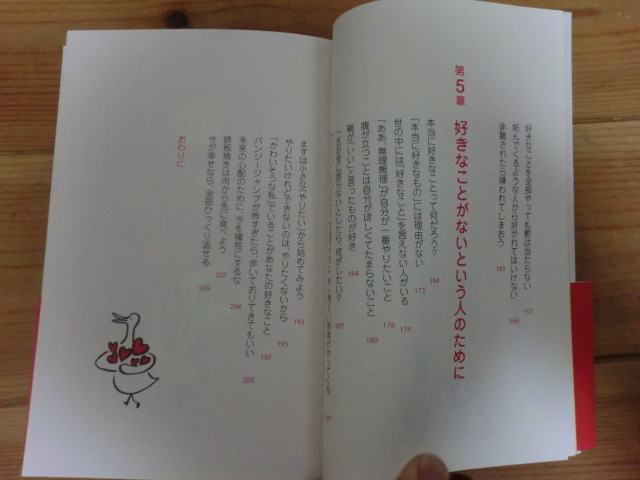 好きなことを全部やっても罰は当たらない 157
拓んでくるような人から好かれてはいけない 160
非難されたら嫌われてしまおう 163
第5章 好きなことがないという人のために
本当に好きなことって何だろう? 168
「本当に好きなもの」には理由がない 173
世の中には「好きなこと」を言えない人がいる 174
「ああ、無理無理」が自分が一番やりたいこと 178
腹が立つことは自分がほしくてたまらないこと 180
親が「いい」と言ったものが好き 184
187
まずは小さな「やりたい」から始めてみよう 193
やりたいけれどできないのは、やりたくないから 195
「かわいそうな私」でいることがあなたの好きなこと 197
バンジージャンプが怖すぎたら、歩いておりてきてもいい 200
未来の心配のために、今を犠牲にするな 204
鉄板焼きは肉から先に食べよう 207
今が幸せなら、全部ひっくり返せる 209
おわりに